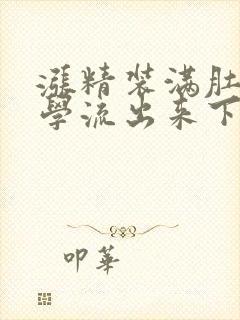 漲精装满肚
學流出来下
叩華